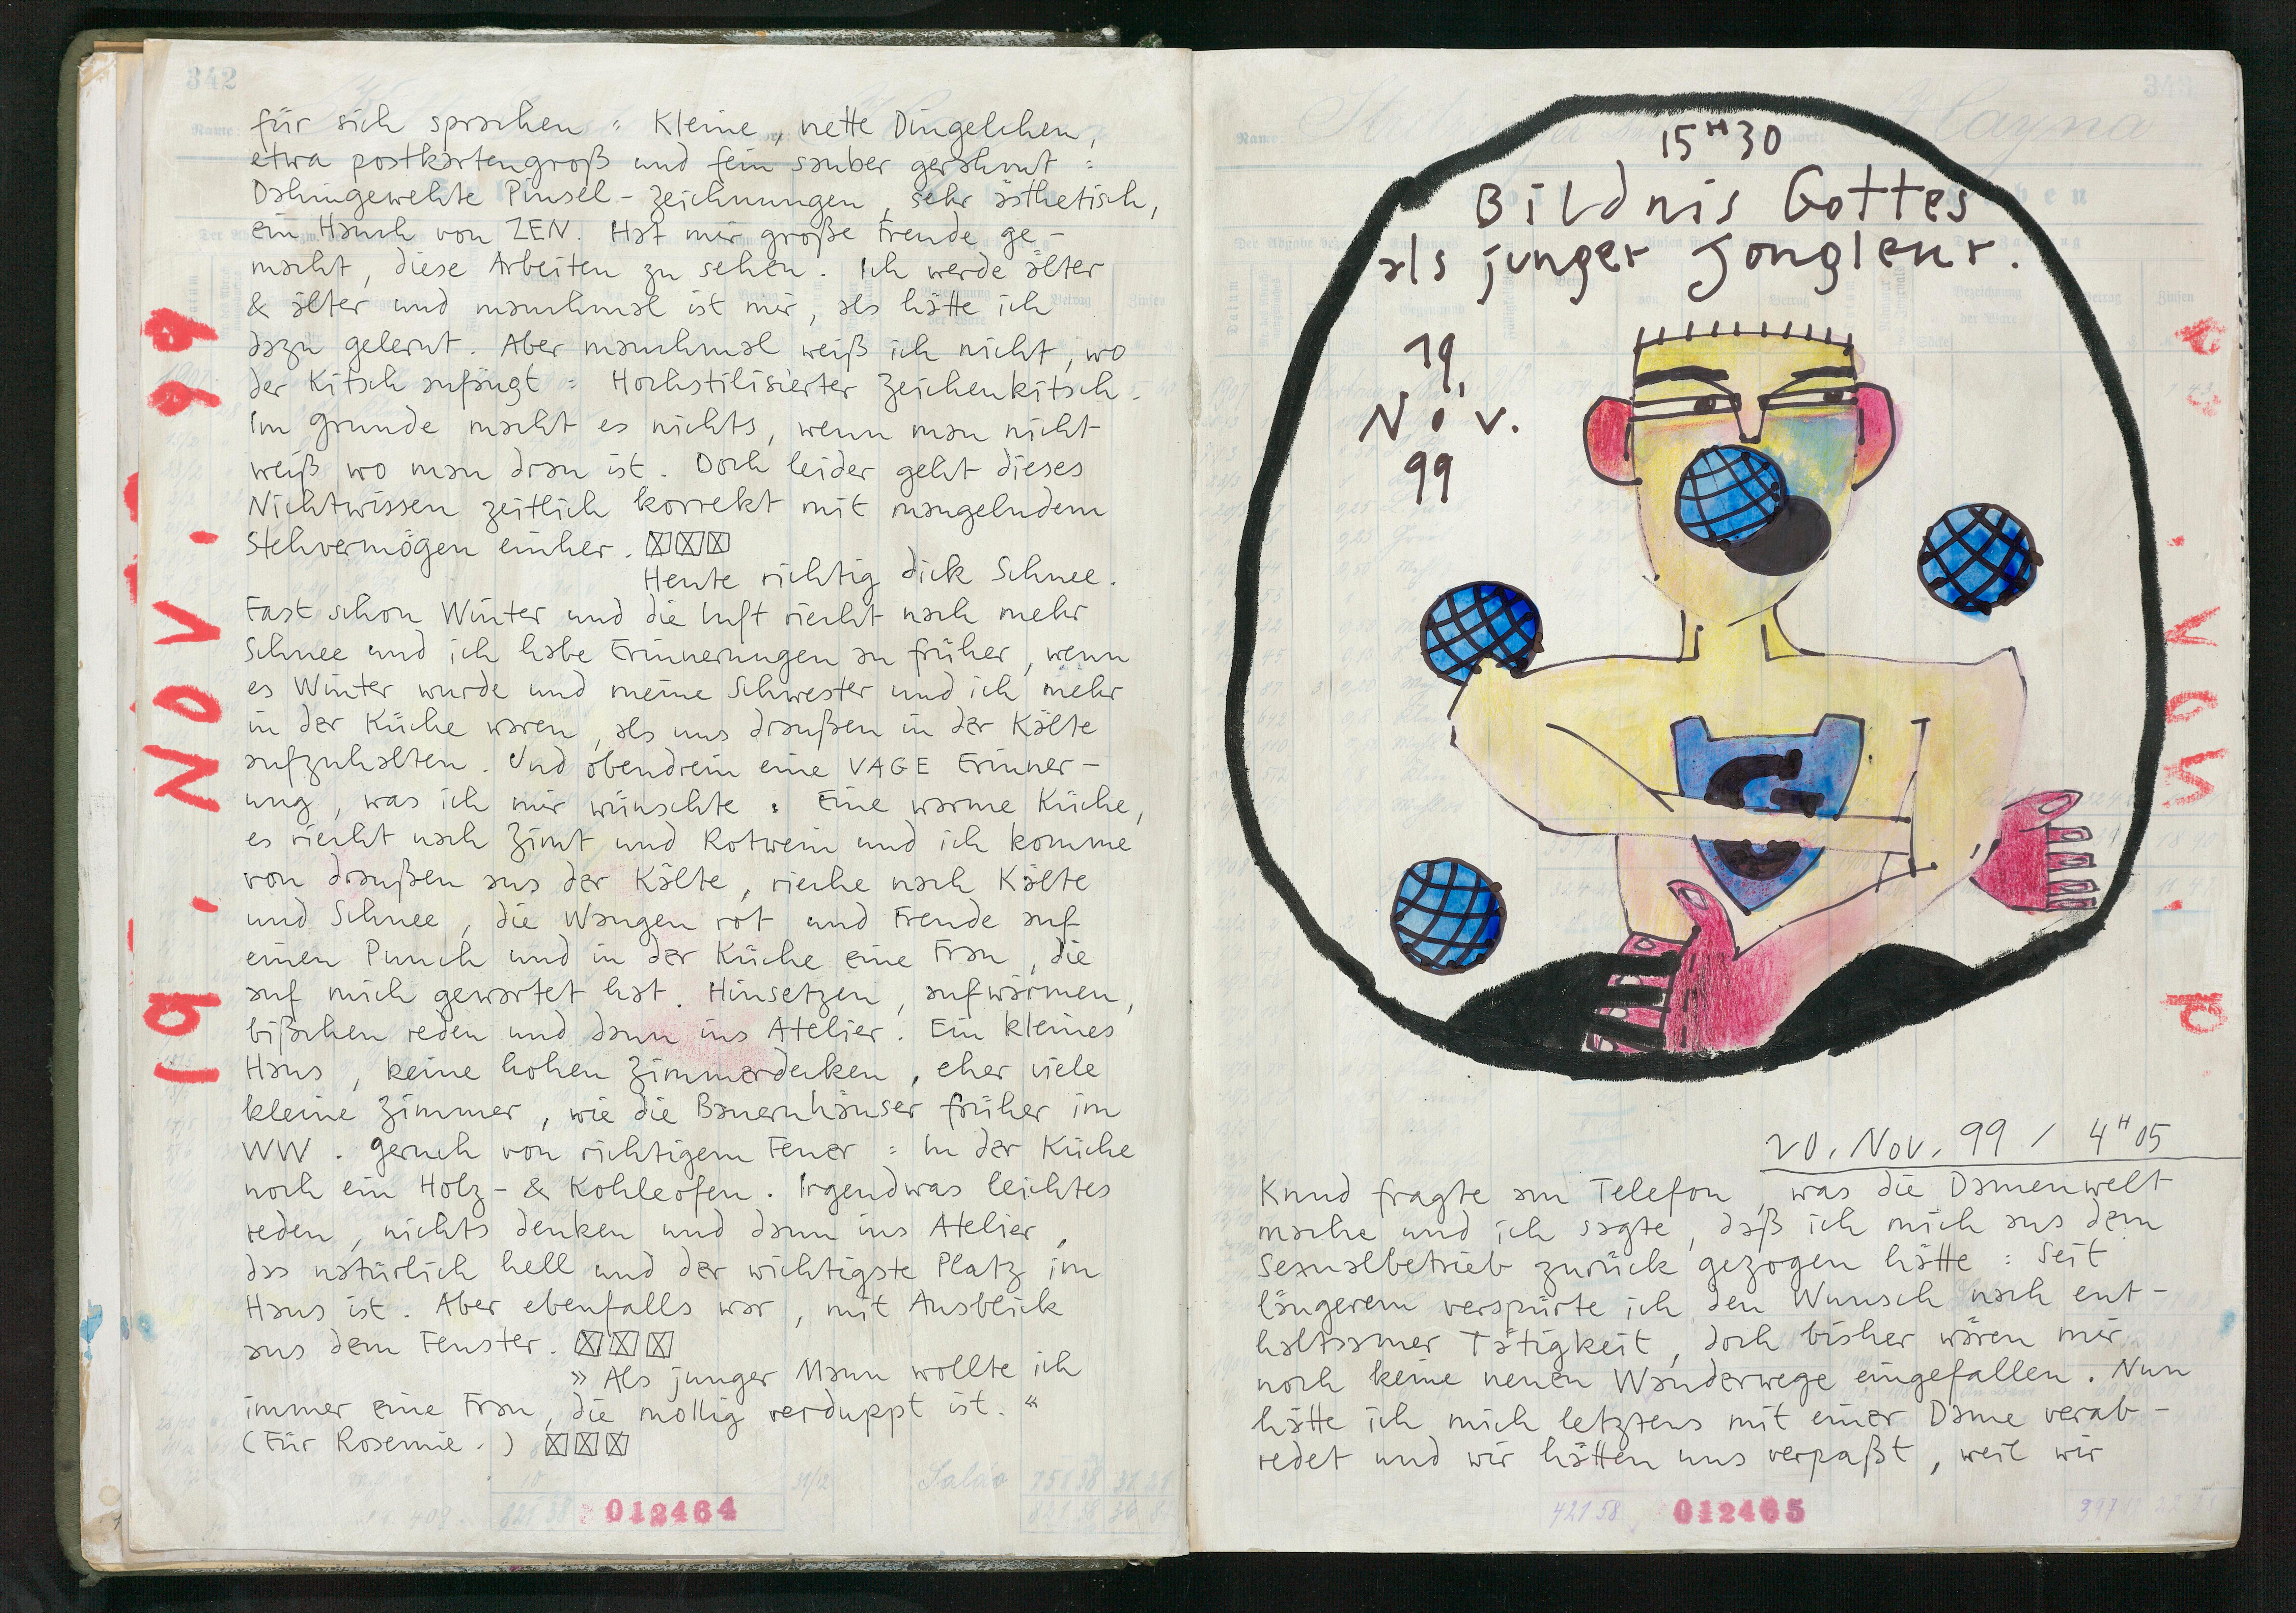 342
19. NOV. 99
für sich sprachen : Kleine, nette Dingelchen,
etwa postkartengroß und fein sauber gerahmt :
Dahingewehte Pinsel-zeichnungen, sehr ästhetisch,
ein Hauch von ZEN. Hat mir große Freude ge-
macht, diese Arbeiten zu sehen. Ich werde älter
& älter und manchmal ist mir, als hätte ich
dazu gelernt. Aber manchmal weiß ich nicht, wo
der Kitsch anfängt : Hochstilisierter Zeichenkitsch.
Im Grunde macht es nichts, wenn man nicht
weiß wo man dran ist. Doch leider geht dieses
Nichtwissen zeitlich korrekt mit mangelndem
Stehvermögen einher.
Heute richtig dick Schnee.
Fast schon Winter und die Luft riecht nach mehr
Schnee und ich habe Erinnerungen an früher, wenn
es Winter wurde und meine Schwester und ich mehr
in der Küche waren, als uns draußen in der Kälte
aufzuhalten. Und obendrein eine VAGE Erinner-
ung, was ich mir wünschte : Eine warme Küche,
es riecht nach Zimt und Rotwein und ich komme
von draußen aus der Kälte, rieche nach Kälte
und Schnee, die Wangen rot und Freude auf
einen Punch und in der Küche eine Frau, die
auf mich gewartet hat. Hinsetzen, aufwärmen,
bißchen reden und dann ins Atelier. Ein kleines
Haus, keine hohen Zimmerdecken, eher viele
kleine Zimmer, wie die Bauernhäuser früher im
WW. Geruch von richtigem Feuer : In der Küche
noch ein Holz- & Kohleofen. Irgendwas leichtes
reden, nichts denken und dann ins Atelier,
das natürlich hell und der wichtigste Platz im
Haus ist. Aber ebenfalls war, mit Ausblick
aus dem Fenster.
» Als junger Mann wollte ich
immer eine Frau, die mollig verduppt ist. «
(Für Rosemie.)
012464
15H30
Bildnis Gottes
als junger Jongleur.
19.
Nov.
99
G
20. Nov. 99 / 4H05
Knud fragte am Telefon, was die Damenwelt
mache und ich sagte, daß ich mich aus dem
Sexualbetrieb zurück gezogen hätte : Seit
längerem verspürte ich den Wunsch nach ent-
haltsamer Tätigkeit, doch bisher wären mir
noch keine neuen Wanderwege eingefallen. Nun
hätte ich mich letztens mit einer Dame verab-
redet und wir hätten uns verpaßt, weil wir
012465